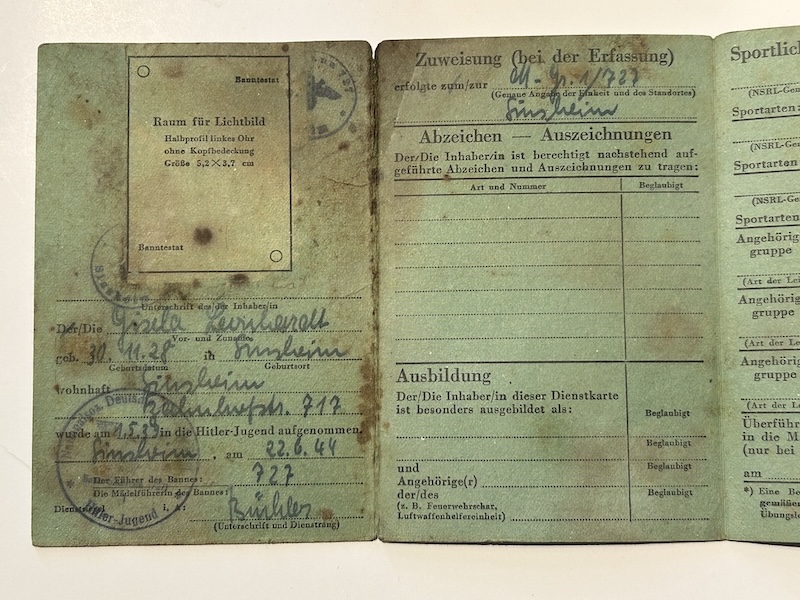 Banntestat
Raum für Lichtbild
Halbprofil linkes Ohr
ohne Kopfbedeckung
Größe 5,2×3,7 cm
Banntestat
Unterschrift des/der Inhaber/in
Der/Die Gisela
Vor- und Zuname
geb. 30. 11. 28 in Sinsheim
Geburtsdatum Geburtsort
wohnhaft Sinsheim
Bahnhofstr. 717
wurde am 1.5.39 in die Hitler-Jugend aufgenommen.
Sinsheim, am 22.6.44
Der Führer des Bannes: 727
Die Mädelführerin des Bannes:
Dienstsiegel i. A: Bühler
(Unterschrift und Dienstrang)
Hitler-Jugend
Zuweisung (bei der Erfassung)
erfolgte zum/zur M-Gr. 1/727
(Genaue Angabe der Einheit und des Standortes)
Sinsheim
Abzeichen — Auszeichnungen
Der/Die Inhaber/in ist berechtigt nachstehend auf-
geführte Abzeichen und Auszeichnungen zu tragen:
Art und Nummer Beglaubigt
Ausbildung
Der/Die Inhaber/in dieser Dienstkarte
ist besonders ausgebildet als:
Beglaubigt
Beglaubigt
und
Beglaubigt
Angehörige(r)
der/des
Beglaubigt
(z. B. Feuerwehrschar,
Luftwaffenhelfereinheit)
Sportlich
(NSRL-Gem
Sportarten:
(NSRL-Gem
Sportarten
(NSRL-Gem
Sportarten
Angehörig
gruppe
(Art der Lei
Angehörig
gruppe
(Art der Lei
Angehörig
gruppe
(Art der Lei
Überführ
in die M
(nur bei
am
*) Eine Be
gemäßen
Übungsle